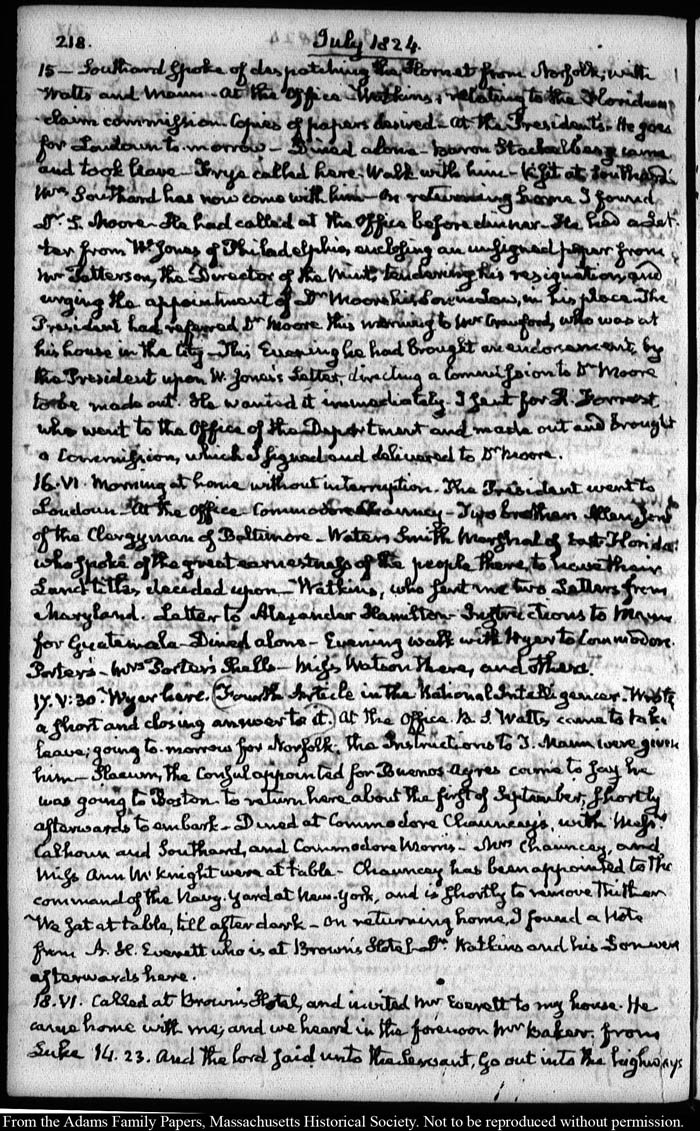 218. July 1824.
15 — Southard spoke of despatching the Hornet from Norfolk; with
Watts and Mann. At the Office Watkins; relating to the Floridean
claim commission Copies of papers desired — At the President's. He goes
for Loudoun to-morrow — Dined alone — Baron Stackelberg came
and took leave — Frye called here. Walk with him — Visit at Southard's
Mrs Southard has now come with him — On returning home I found
Dr. S. Moore — He had called at the Office before dinner — He had a Let-
ter from W. Jones of Philadelphia, enclosing an unsigned paper from
Mr Patterson, the Director of the Mint, tendering his resignation, and
urging the appointment of Dr Moore his Son in Law, in his place. The
President had referred Dr Moore this morning to Mr Crawford, who was at
his house in the City — This Evening he had brought an endorsement, by
the President upon W. Jones's Letter, directing a Commission to Dr Moore
to be made out. He wanted it immediately. I sent for R. Forrest,
who went to the Office of the Department and made out and brought
a Commission, which I signed and delivered to Dr Moore.
16. VI. Morning at home without interruption. The President went to
Loudoun — At the Office — Commodore Chauncey — Two brothers Allen, Sons
of the Clergyman of Baltimore — Waters Smith Marshal of East-Florida
who spoke of the great earnestness of the people there, to have their
Land titles decided upon — Watkins, who sent me two Letters from
Maryland. Letter to Alexander Hamilton — Instructions to Mann
for Guatemala — Dined alone — Evening walk with Wyer to Commodore
Porter's — Mrs Porter's Shells — Miss Watson there, and others.
17. V:30. Wyer here. (Fourth Article in the National Intelligencer. Wrote
a short and closing answer to it.) At the Office. B. S Watts came to take
leave; going to-morrow for Norfolk. the Instructions to T. Mann were given
him — Slacum, the Consul appointed for Buenos Ayres came to say he
was going to Boston. to return here about the first of September; shortly
afterwards to embark — Dined at Commodore Chauncey's, with Messrs
Calhoun and Southard, and Commodore Morris — Mrs Chauncey, and
Miss Ann McKnight were at table — Chauncey has been appointed to the
command of the Navy-Yard at New-York, and is shortly to remove thither
We sat at table, till after dark — On returning home, I found a Note
from A. H. Everett who is at Brown's Hotel — Dr. Watkins and his Son were
afterwards here.
18. VI. Called at Brown's Hotel, and invited Mr Everett to my house. He
came home with me; and we heard in the forenoon Mr Baker. from
Luke 14. 23. And the lord said unto the Servant, Go out into the highways
From the Adams Family Papers, Massachusetts Historical Society. Not to be reproduced without permission.